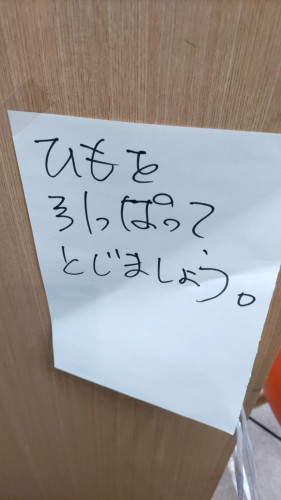 ひもを
引っぱって
とじましょう。